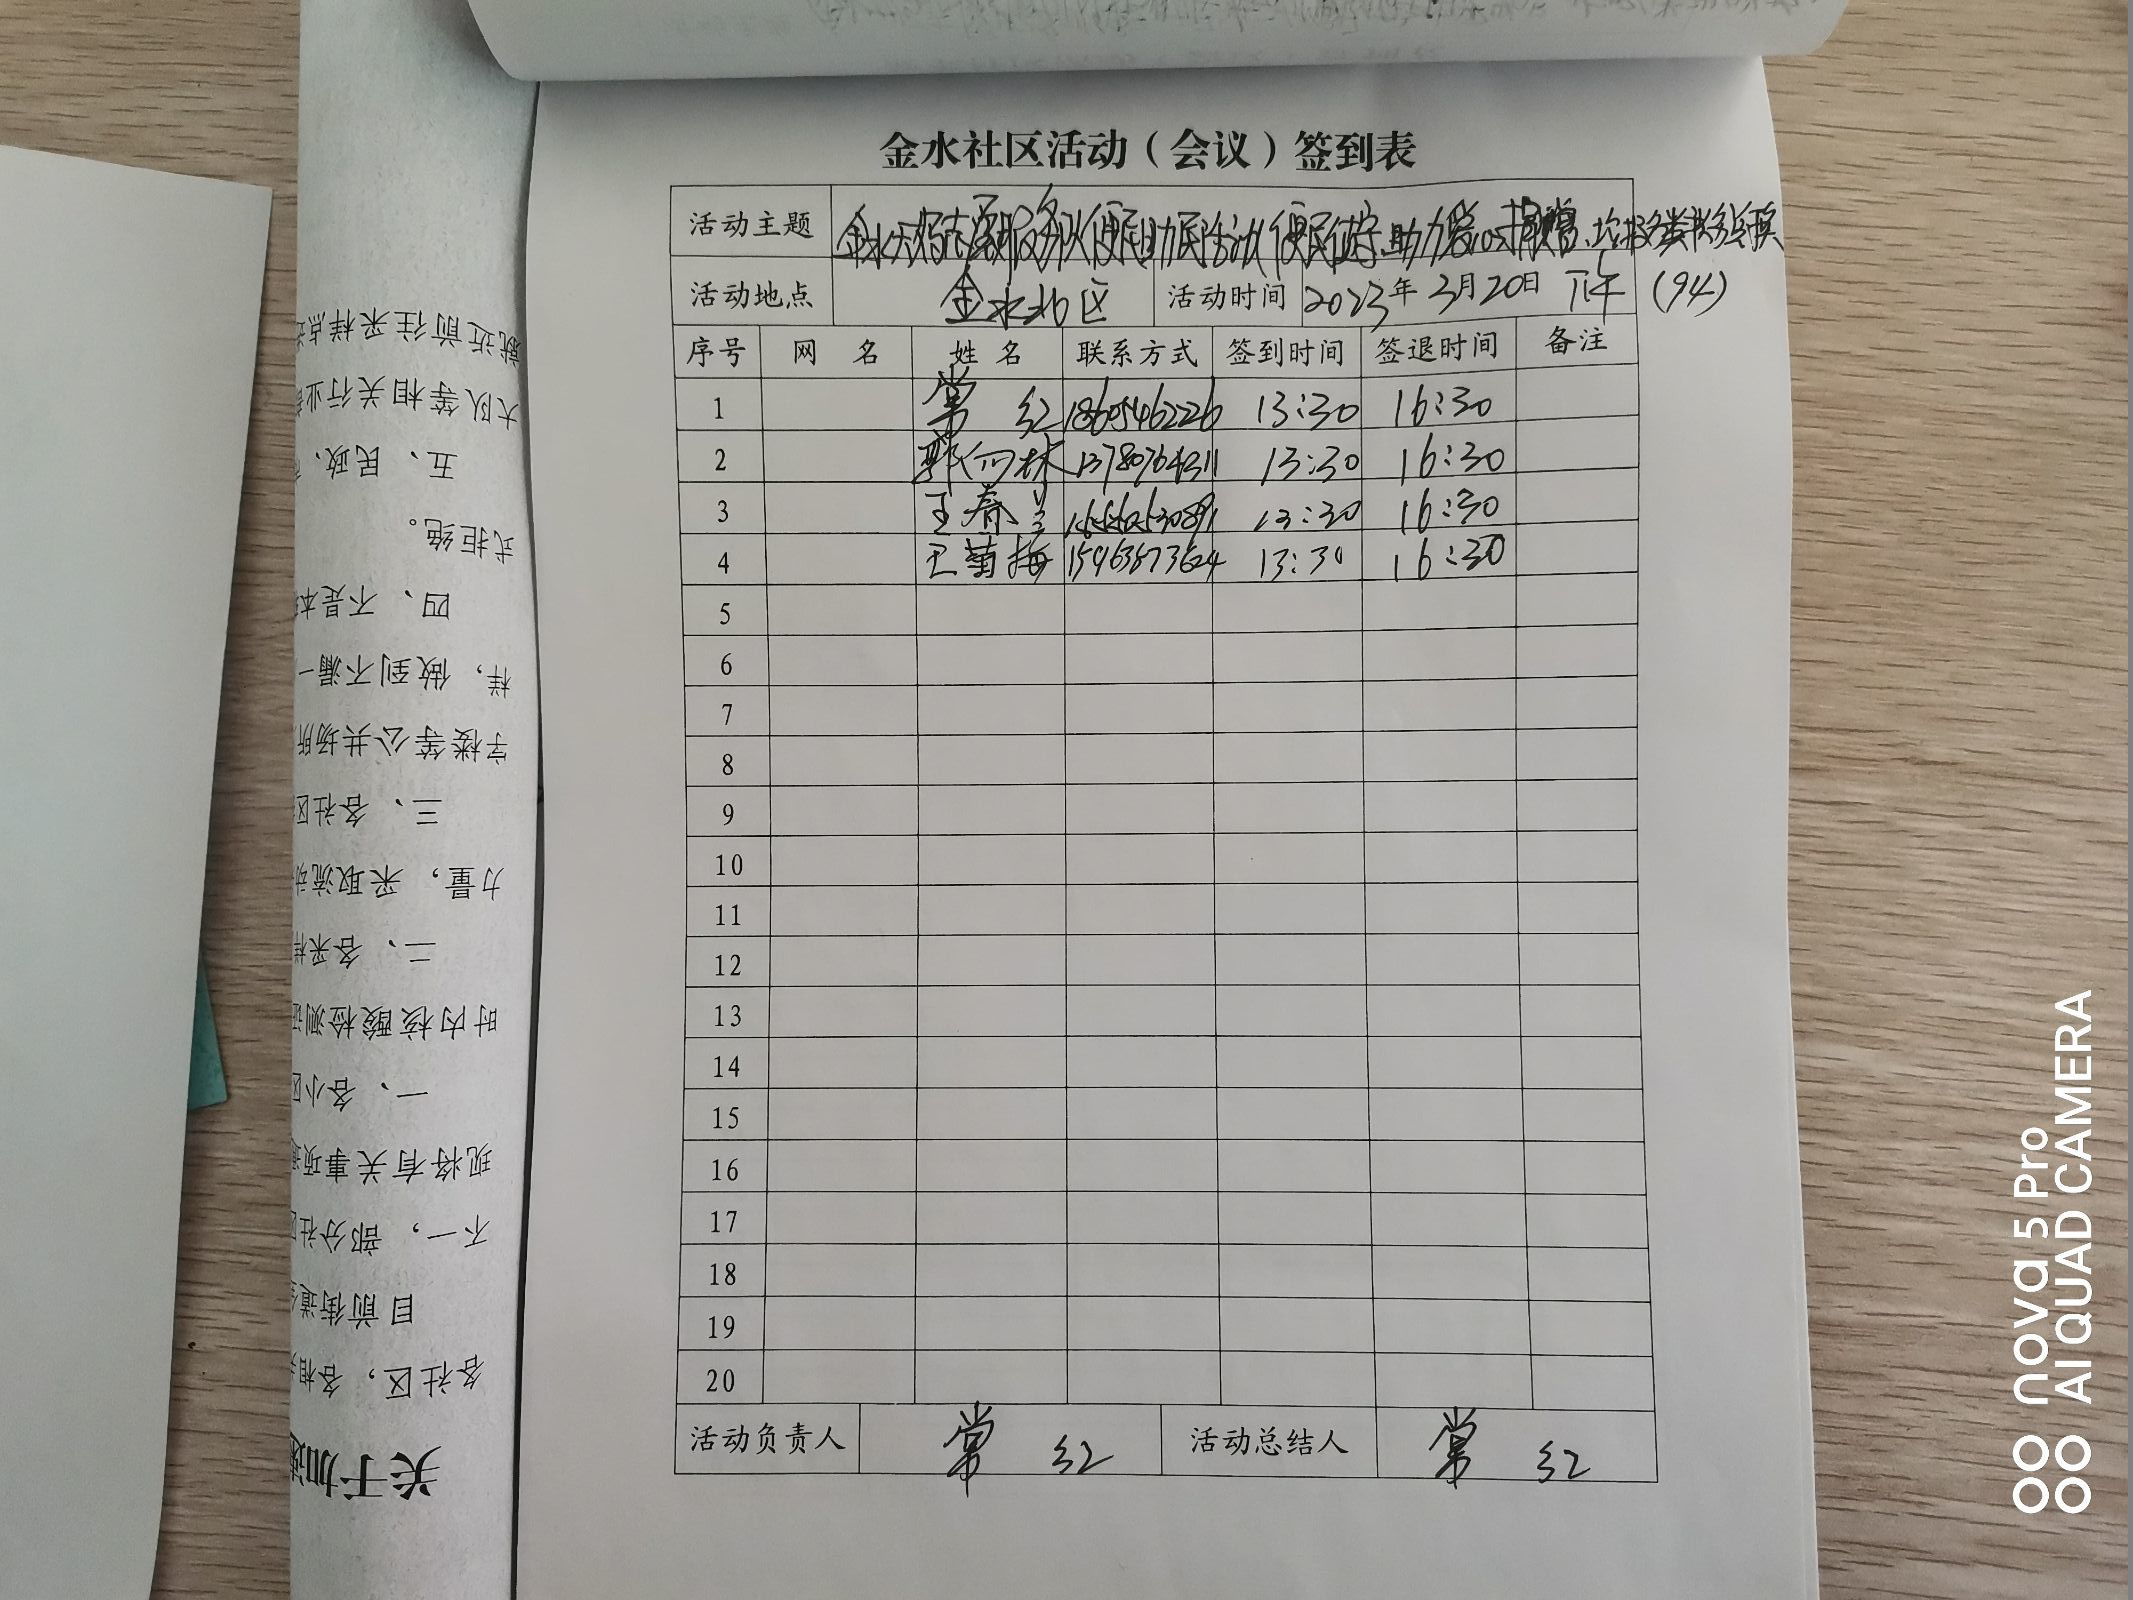 金水社区活动（会议）签到表
活动主题 金水 志愿服务队便民助民活动（便民 、助力爱心捐赠、
活动地点 金水北区 活动时间 2023年3月20日 下午 (94)
序号 网 名 姓 名 联系方式 签到时间 签退时间 备注
1 常 红 13:30 16:30
2 郭 林 13780764311 13:30 16:30
3 王春兰 13:30 16:30
4 王菊梅 13:30 16:30
5
6
7
8
9
10
11
12
13
14
15
16
17
18
19
20
活动负责人 常 红 活动总结人 常 红
关于加
各社区，各相
目前街道
不一，部分社区
现将有关事项
一、各小区
时内核酸检测
二、各采样
力量，采取流动
三、各社区
字楼等公共场所
样，做到不漏一
四、不是本
式拒绝。
五、民政、
大队等相关行业
就近前往采样点
nova 5 Pro
AI QUAD CAMERA